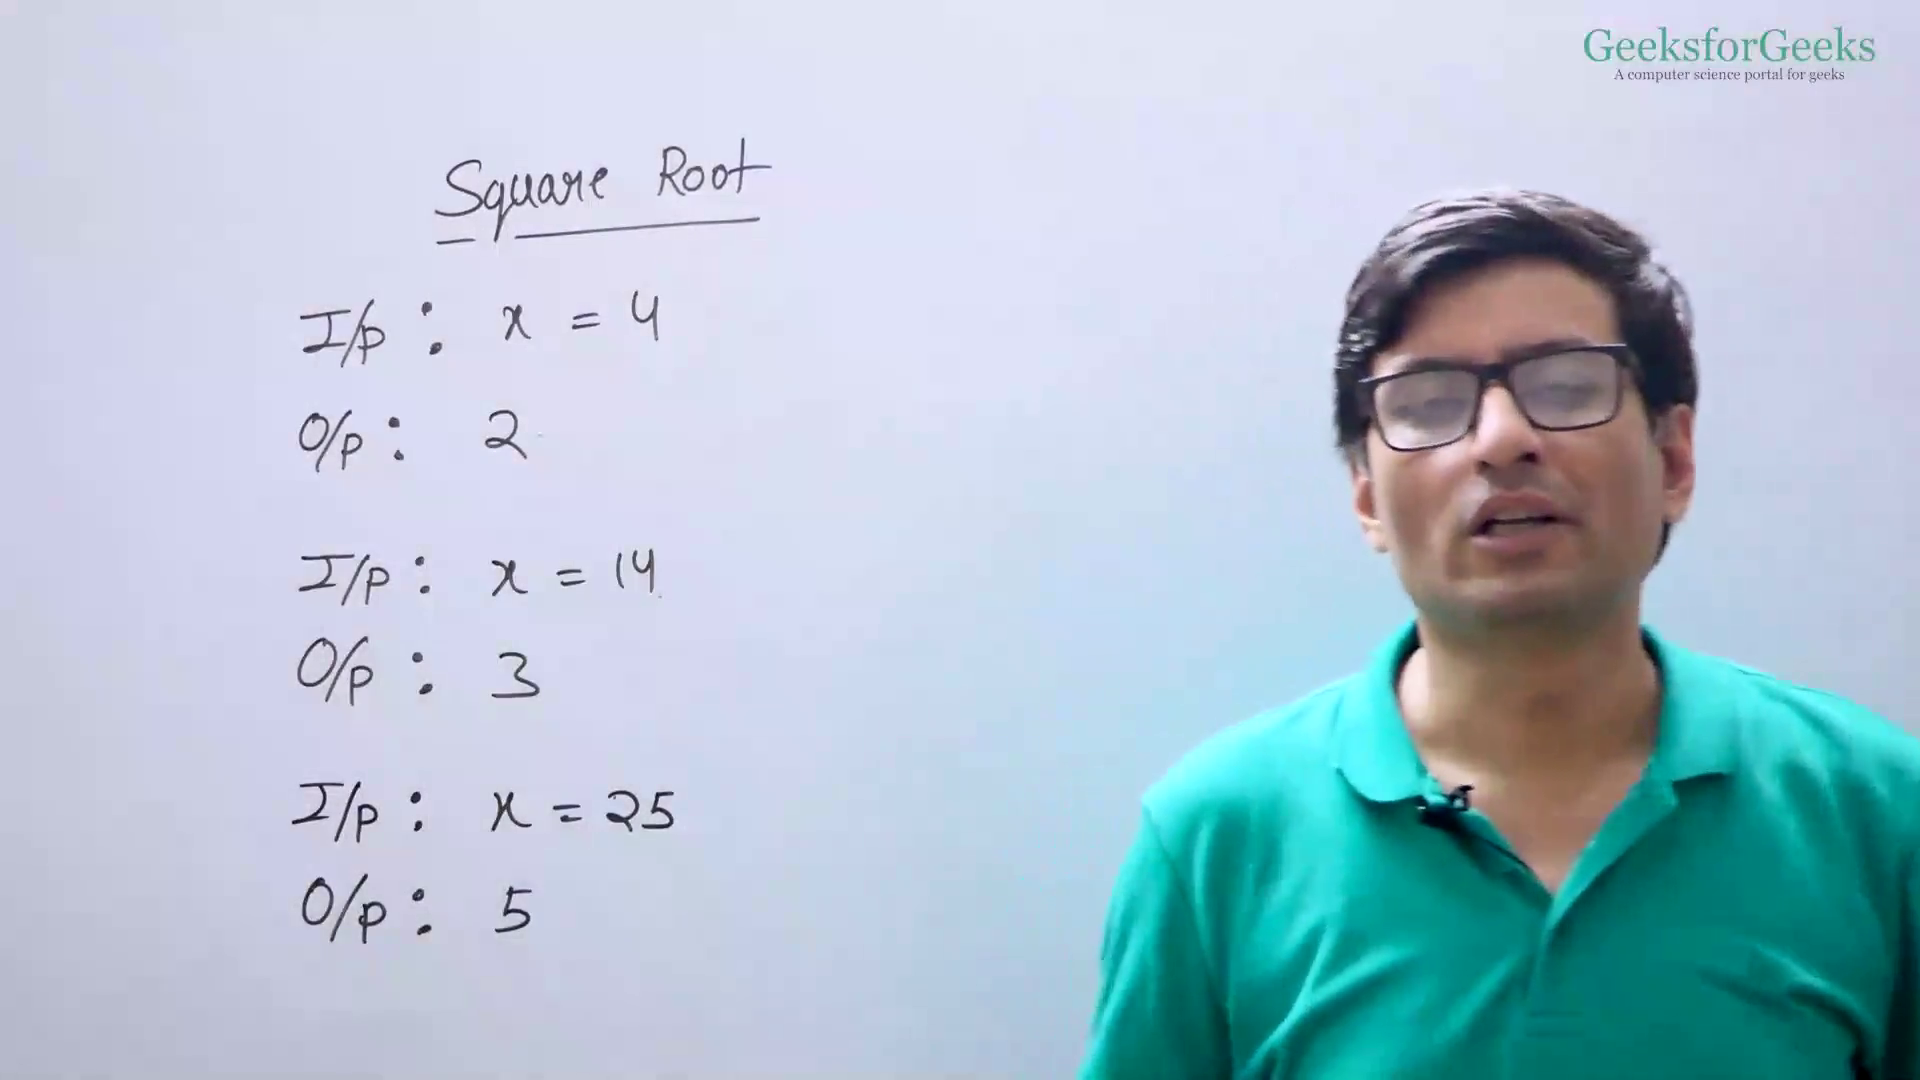 GeeksforGeeks
A computer science portal for geeks
Square Root
I/p : x = 4
O/p : 2
I/p : x = 14
O/p : 3
I/p : x = 25
O/p : 5